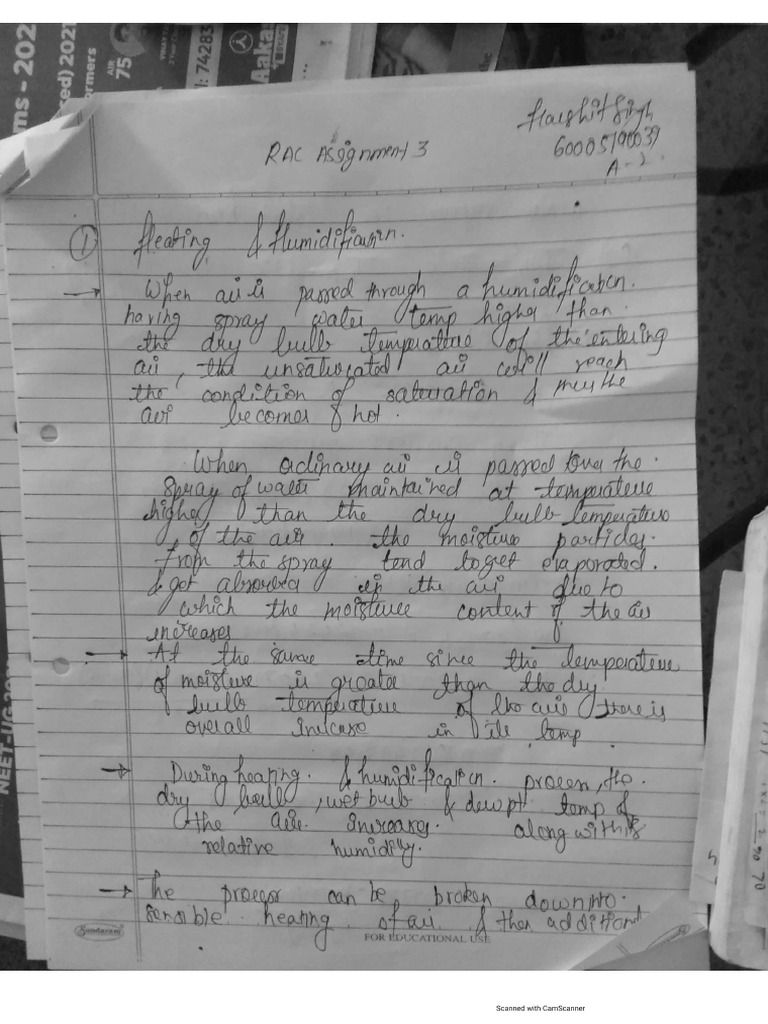 ms - 202
ced) 2021
ormers
AIR
75
: 74283
Aaka
Harshit Singh
60005190039
A-2
RAC Assignment 3
① Heating & Humidification.
→ When air is passed through a humidification.
having spray water temp higher than
the dry bulb temperature of the entering
air, the unsaturated air will reach
the condition of saturation & thus the
air becomes hot.
When ordinary air is passed over the
spray of water maintained at temperature
higher than the dry bulb temperature
of the air. the moisture particles
from the spray tend to get evaporated.
& got absorbed in the air due to
which the moisture content of the air
increases
→ At the same time since the temperature
of moisture is greater than the dry
bulb temperature of the air there is
overall increase in its temp
→ During heating. & humidification. process, the.
dry bulb, wet bulb & dewpt temp of
the air increases. along with its
relative humidity.
→ The process can be broken down into.
sensible heating of air & then addition
Sundaram
FOR EDUCATIONAL USE
NEET-UG 202
Scanned with CamScanner